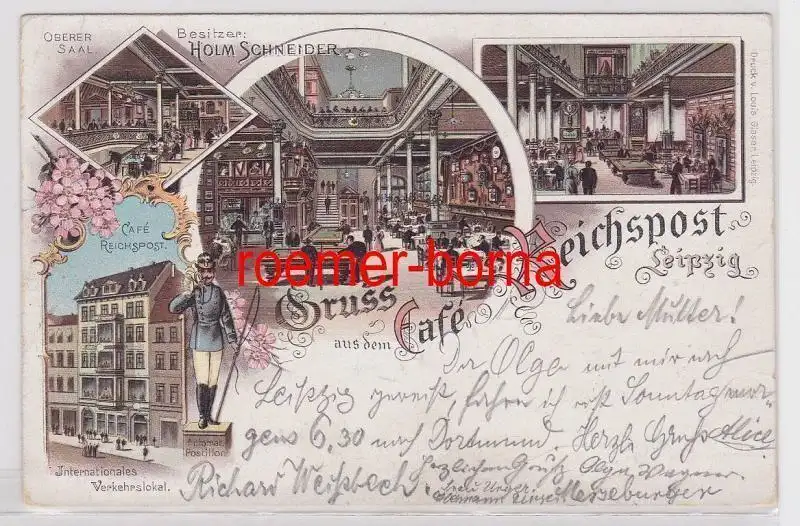 OBERER
SAAL.
Besitzer:
HOLM SCHNEIDER.
Druck v. Louis Glaser, Leipzig.
CAFÉ
REICHSPOST.
roemer-borna
Gruss
aus dem
Café
Reichspost
Leipzig
Automat.
Postillon.
Internationales
Verkehrslokal.
Liebe Mutter!
Da Olga mit mir nach
Leipzig gereist, fahre ich erst Sonntagmor-
gens 6,30 nach Dortmund. Herzl. Gruß Alice
Herzlichen Gruß Olga Wagner
Richard Weißbach
Merseburger